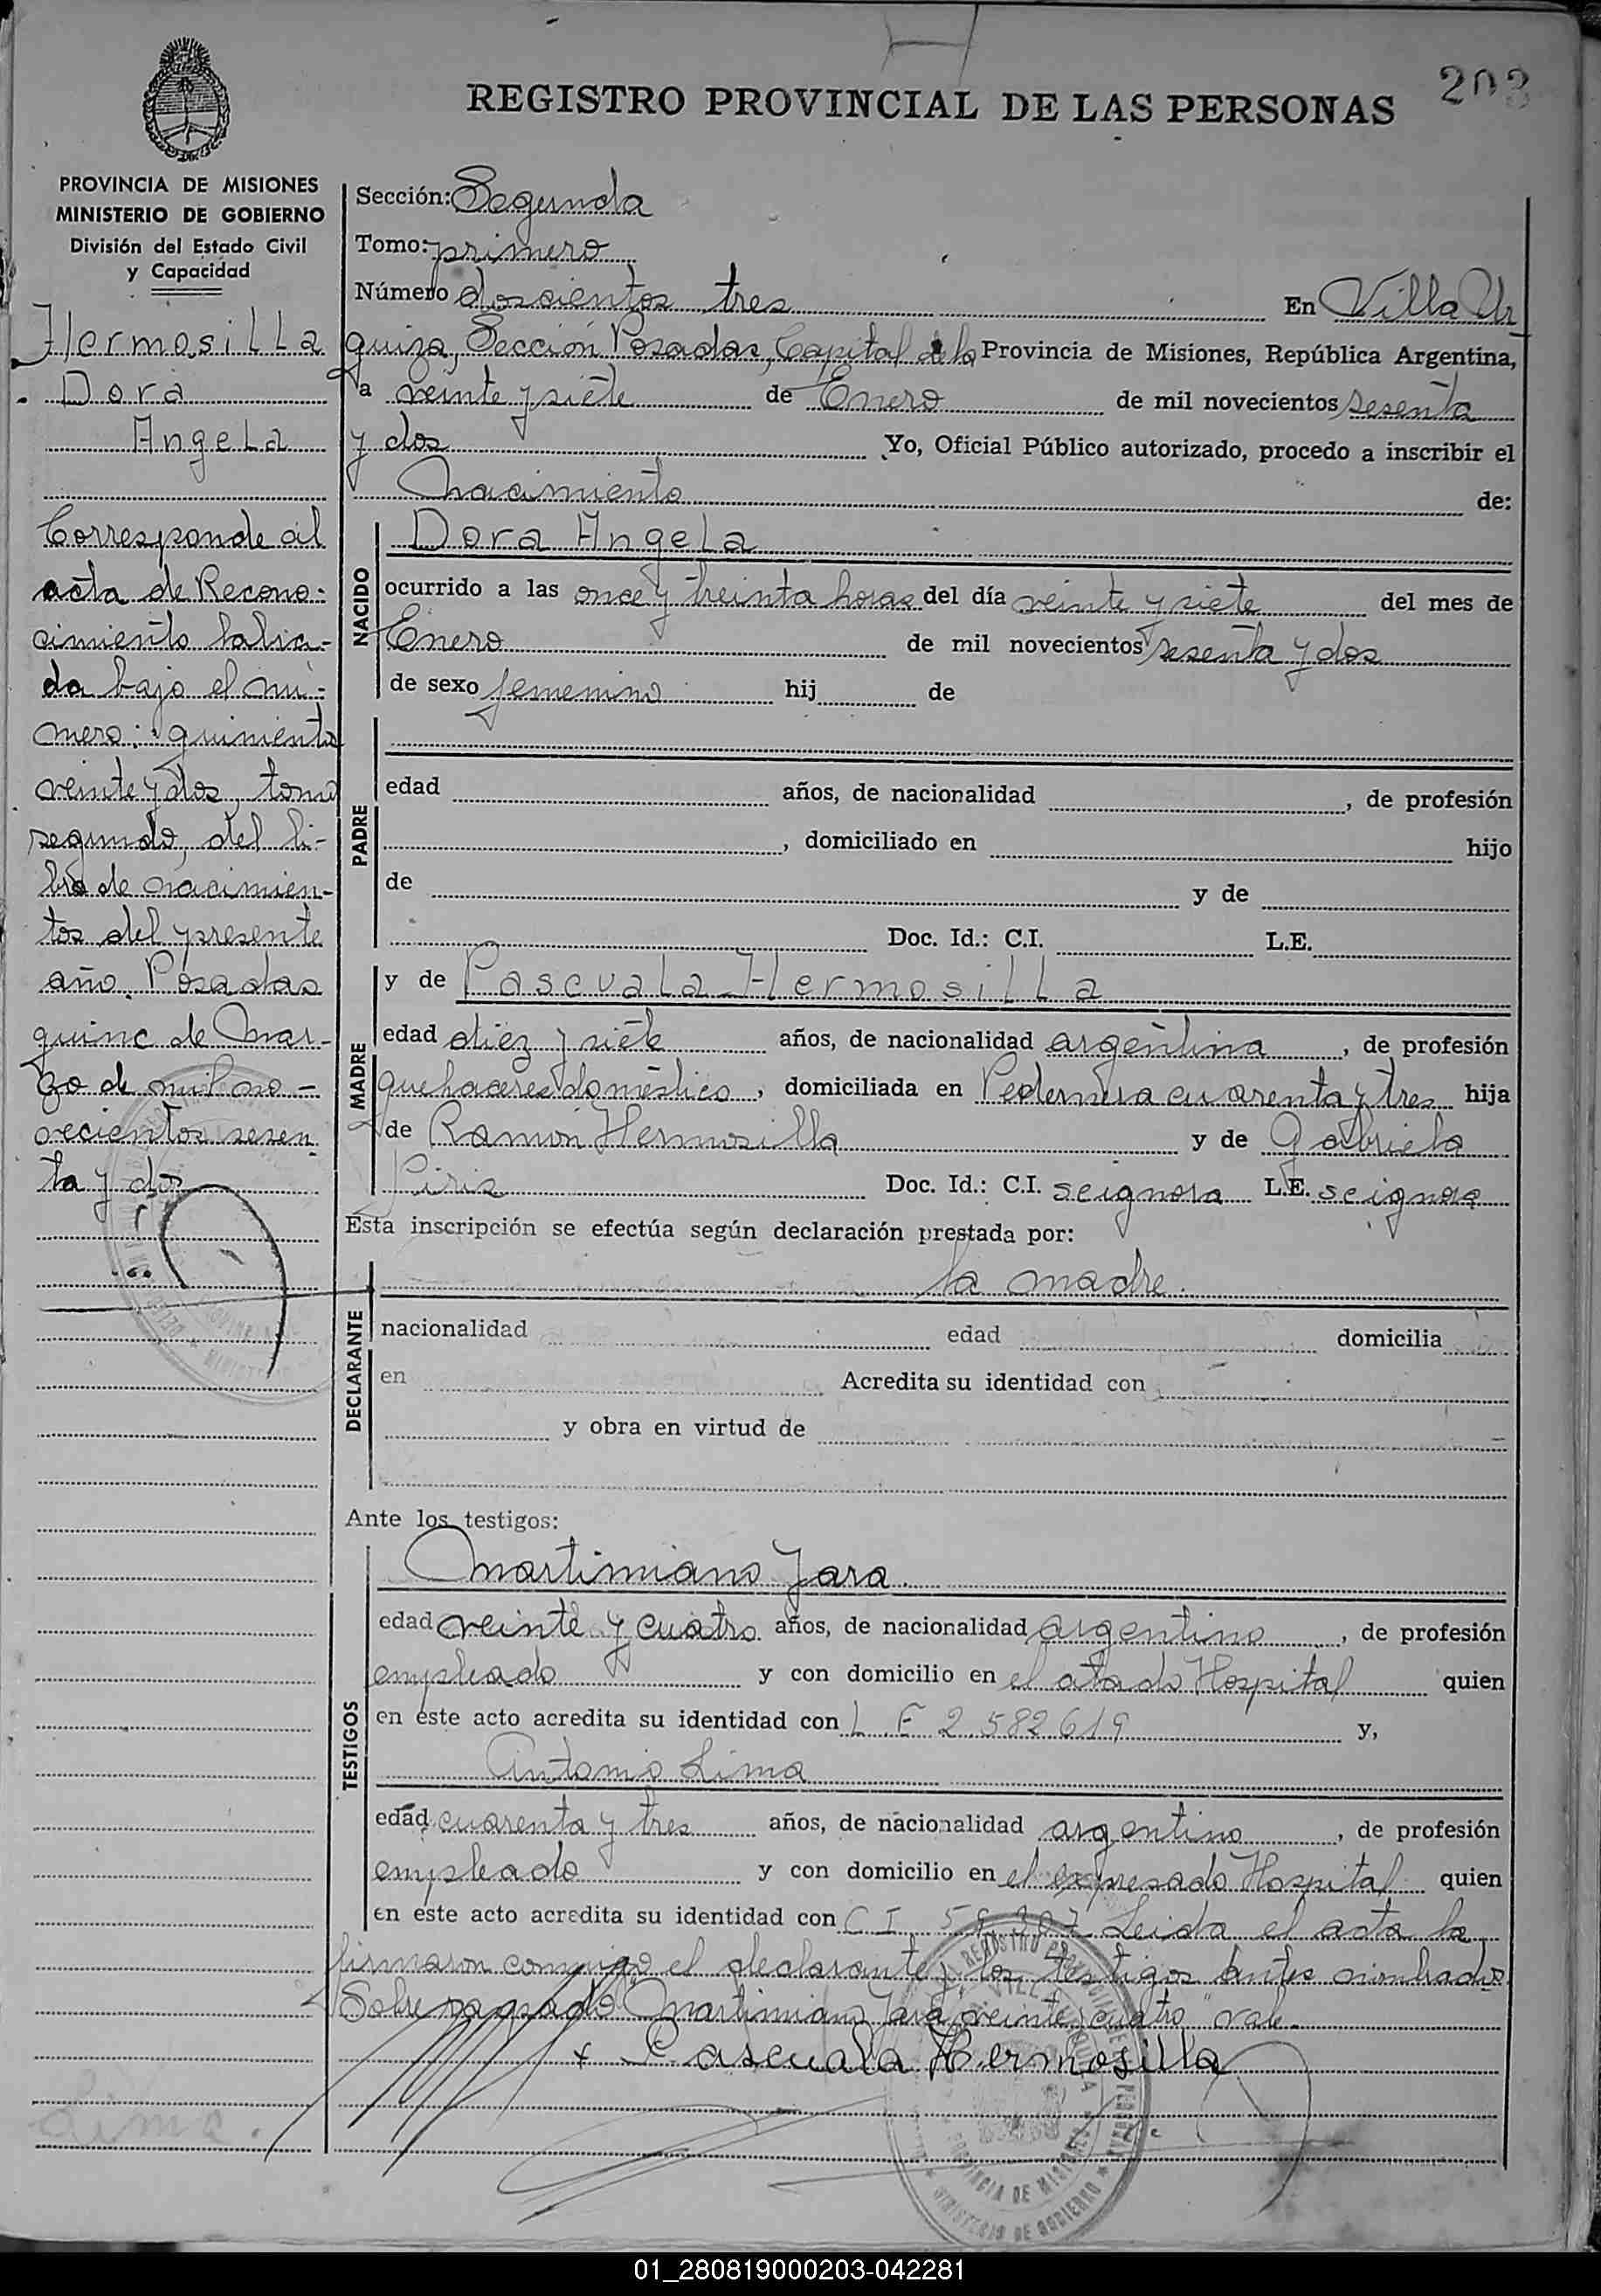 203
REGISTRO PROVINCIAL DE LAS PERSONAS
PROVINCIA DE MISIONES
MINISTERIO DE GOBIERNO
División del Estado Civil
y Capacidad
Hermosilla
Dora
Angela
Corresponde al
acta de Recono-
cimiento labra-
da bajo el nú-
mero: quinienta
veinte y dos, tomo
segundo, del li-
bro de nacimien-
tos del presente
año. Posadas
quinc de Mar-
zo de mil no-
vecientos sesen
ta y dos
Sección: Segunda
Tomo: primero
Número doscientos tres En Villa Ur
quiza, Sección Posadas, Capital de la Provincia de Misiones, República Argentina,
a veinte y siete de Enero de mil novecientos sesenta
y dos Yo, Oficial Público autorizado, procedo a inscribir el
Nacimiento de:
NACIDO
Dora Angela
ocurrido a las once y treinta horas del día veinte y siete del mes de
Enero de mil novecientos sesenta y dos
de sexo femenino hij de
PADRE
edad años, de nacionalidad , de profesión
, domiciliado en hijo
de y de
Doc. Id.: C.I. L.E.
MADRE
y de Pascuala Hermosilla
edad diez y siete años, de nacionalidad argentina , de profesión
quehaceres doméstico , domiciliada en Pedernera cuarenta y tres hija
de Ramón Hermosilla y de Gabriela
Piris Doc. Id.: C.I. seignora L.E. seignora
Esta inscripción se efectúa según declaración prestada por:
DECLARANTE
la madre.
nacionalidad edad domicilia
en Acredita su identidad con
y obra en virtud de
Ante los testigos:
TESTIGOS
Martimiano Jara
edad veinte y cuatro años, de nacionalidad argentino , de profesión
empleado y con domicilio en el citado Hospital quien
en este acto acredita su identidad con L E 2.582.619 y,
Antonio Lima
edad cuarenta y tres años, de nacionalidad argentino , de profesión
empleado y con domicilio en el expresado Hospital quien
en este acto acredita su identidad con C I Leida el acta la
firmaron conmigo el declarante y los testigos antes nombrados
Sobre raspado Martimiano Jara, veinte y cuatro vale.
x Pascuala Hermosilla
Lima.
PROVINCIA DE MISIONES
MINISTERIO DE GOBIERNO
01_280819000203-042281